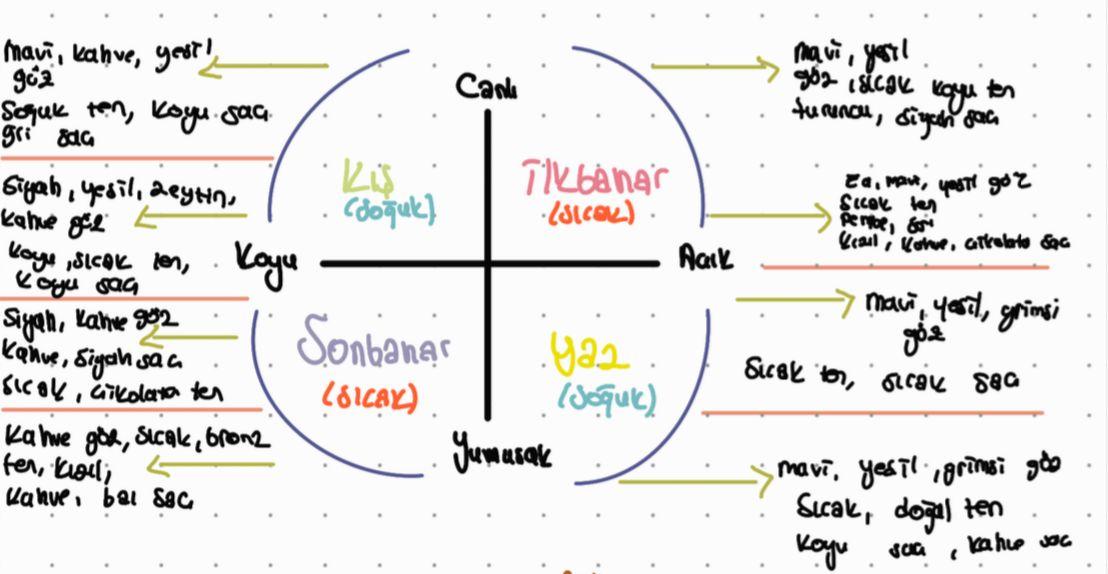 Mavi, kahve, yesil
göz
Soguk ten, koyu sac
gri sac
Siyah, yesil, zeytin,
kahve göz
koyu, sıcak ten,
koyu sac
Siyah, kahve göz
kahve, siyah sac
sıcak, cikolata ten
Kahve göz, sıcak, bronz
ten, kızıl,
kahve, bal sac
Canlı
Kış
(soğuk)
İlkbahar
(sıcak)
Koyu
Acık
Sonbahar
(sıcak)
Yaz
(soğuk)
Yumusak
mavi, yesil
göz, sıcak koyu ten
turuncu, siyah sac
Ela, mavi, yesil göz
Sıcak ten
Pembe, sarı
kızıl, kahve, cikolata sac
mavi, yesil, grimsi
göz
Sıcak ten, sıcak sac
mavi, yesil, grimsi göz
Sıcak, doğal ten
koyu sac, kahve sac